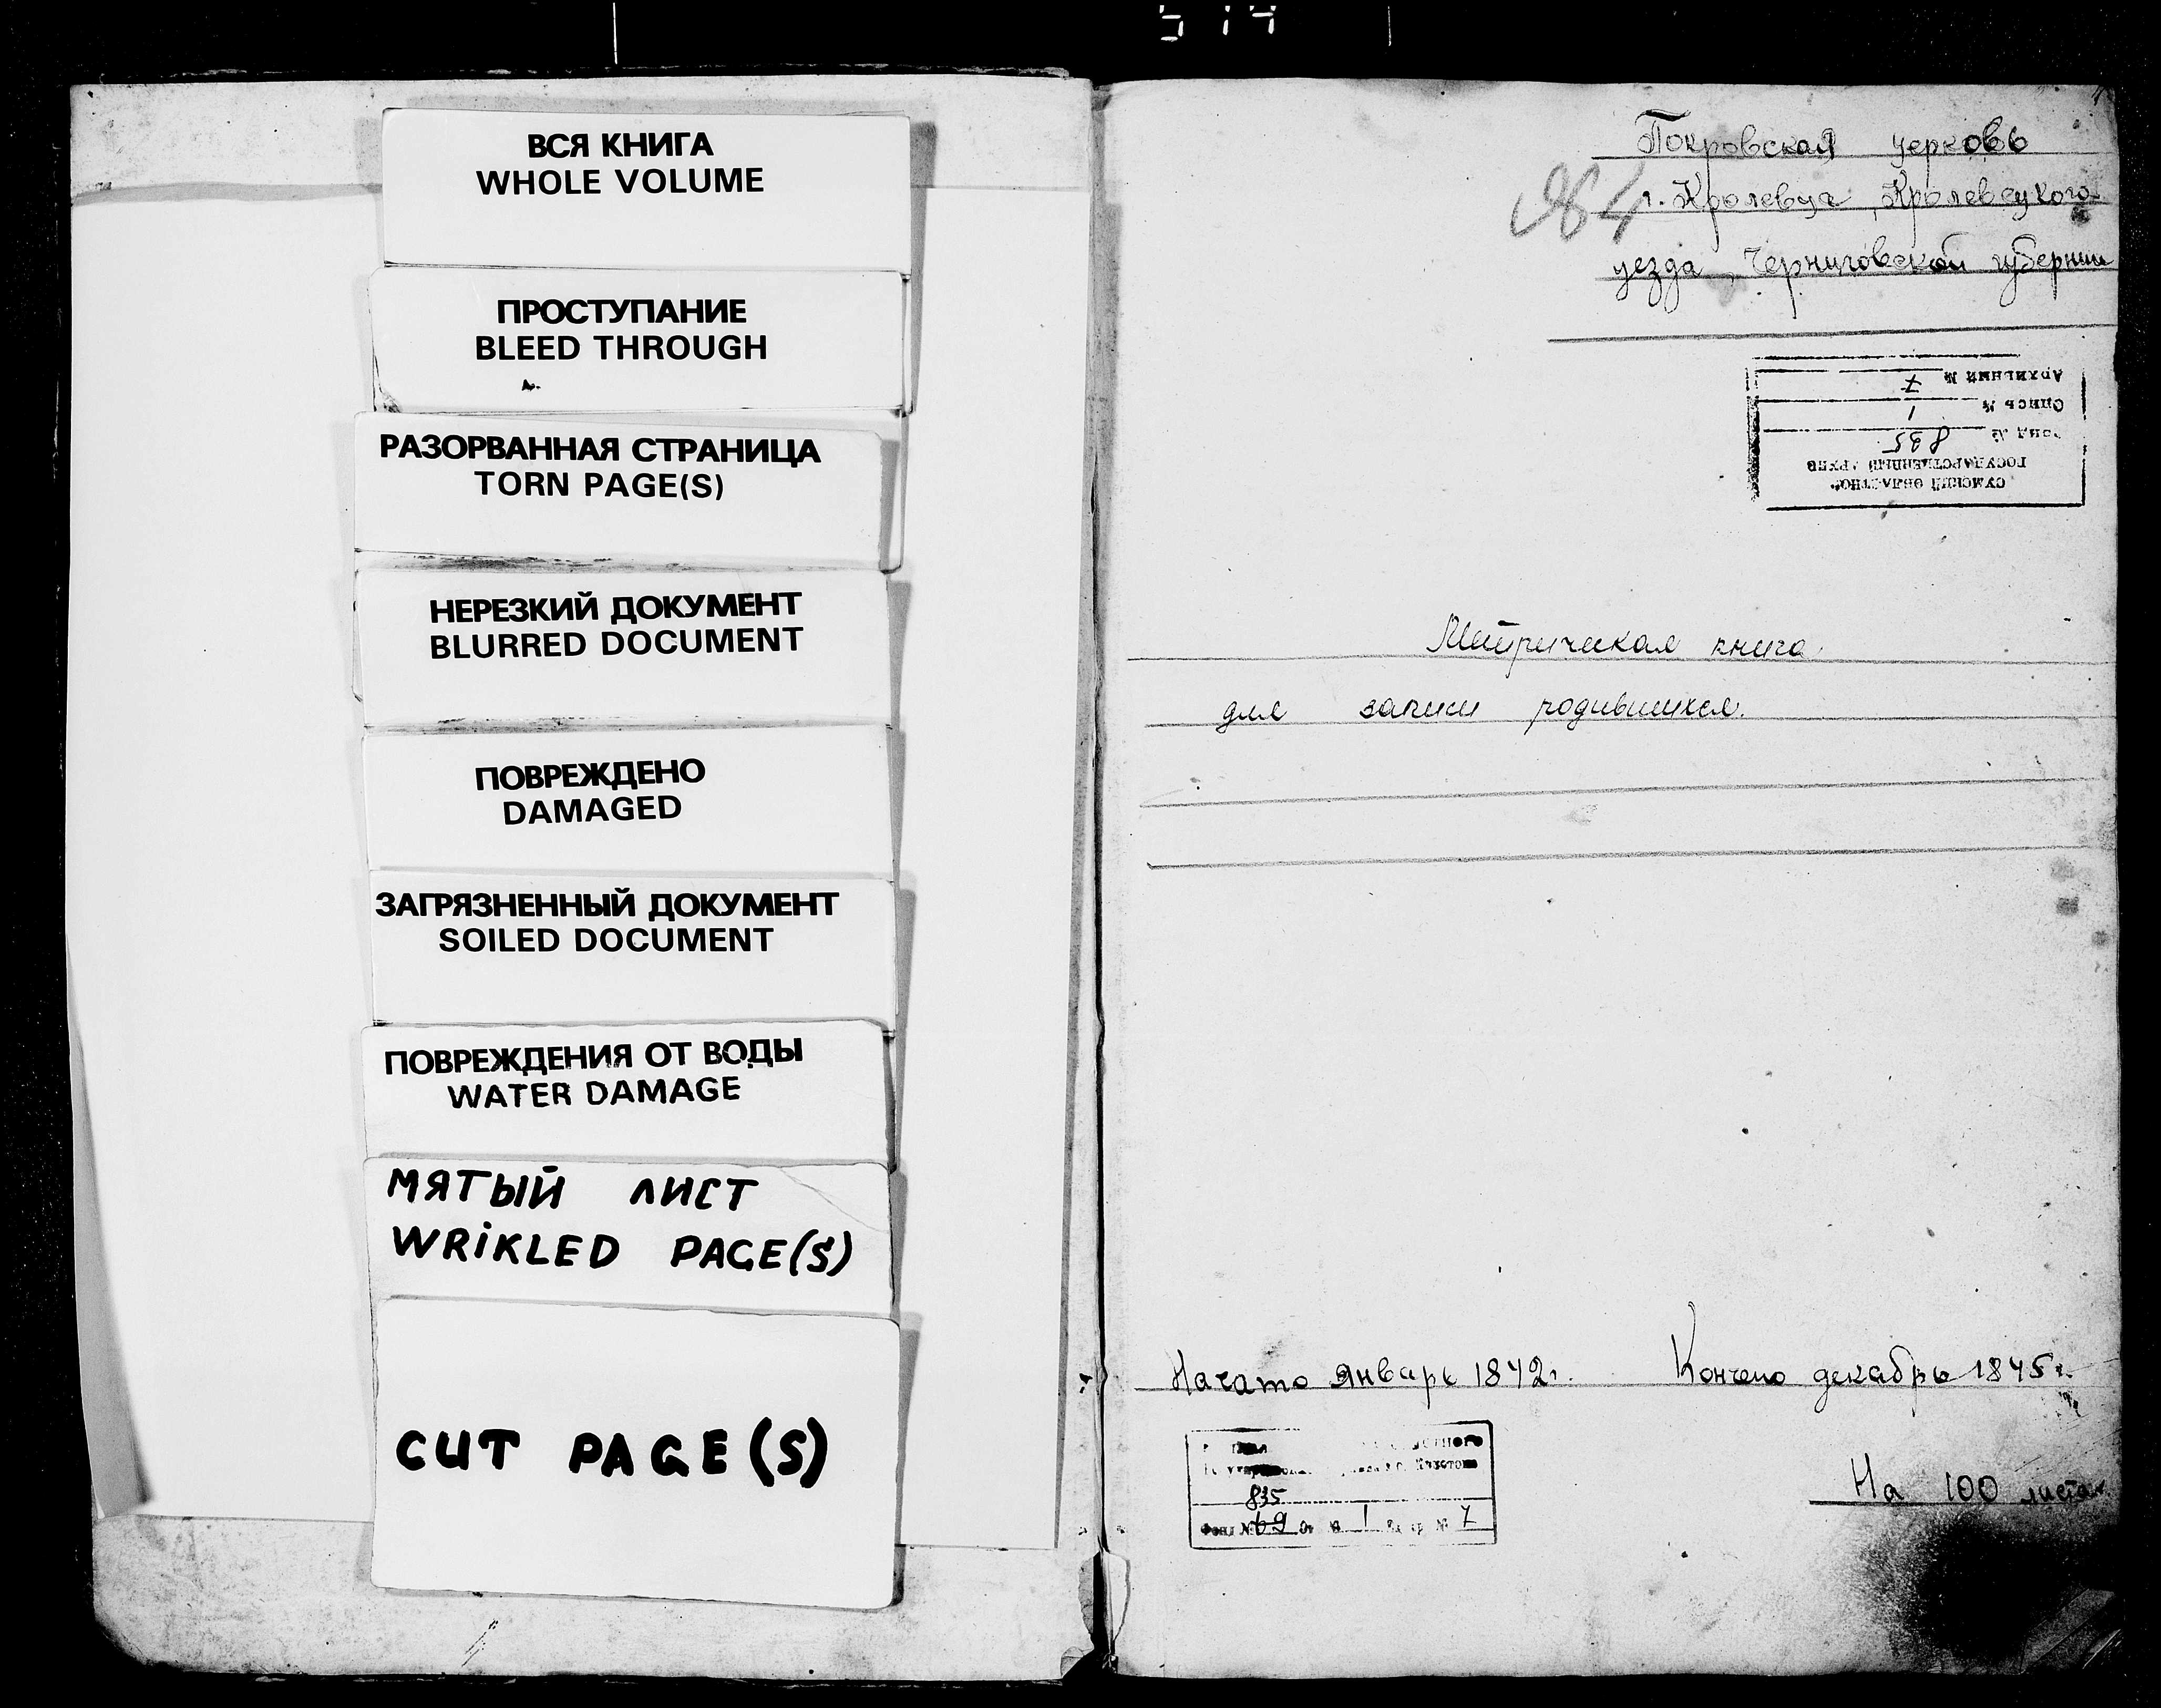 ВСЯ КНИГА
WHOLE VOLUME
ПРОСТУПАНИЕ
BLEED THROUGH
РАЗОРВАННАЯ СТРАНИЦА
TORN PAGE(S)
НЕРЕЗКИЙ ДОКУМЕНТ
BLURRED DOCUMENT
ПОВРЕЖДЕНО
DAMAGED
ЗАГРЯЗНЕННЫЙ ДОКУМЕНТ
SOILED DOCUMENT
ПОВРЕЖДЕНИЯ ОТ ВОДЫ
WATER DAMAGE
МЯТЫЙ ЛИСТ
WRIKLED PAGE(S)
CUT PAGE(S)
Покровская церковь
г. Кролевца, Кролевецкого
уезда, Черниговской губернии
СУМСКИЙ ОБЛАСТНОЙ
ГОСУДАРСТВЕННЫЙ АРХИВ
Фонд № 835
Опись № 1
Архивный № 7
Метрическая книга
для записи родившихся.
Начато январь 1842г. Кончено декабрь 1845г.
На 100 листах
835
Фонд № 69 1 № 7